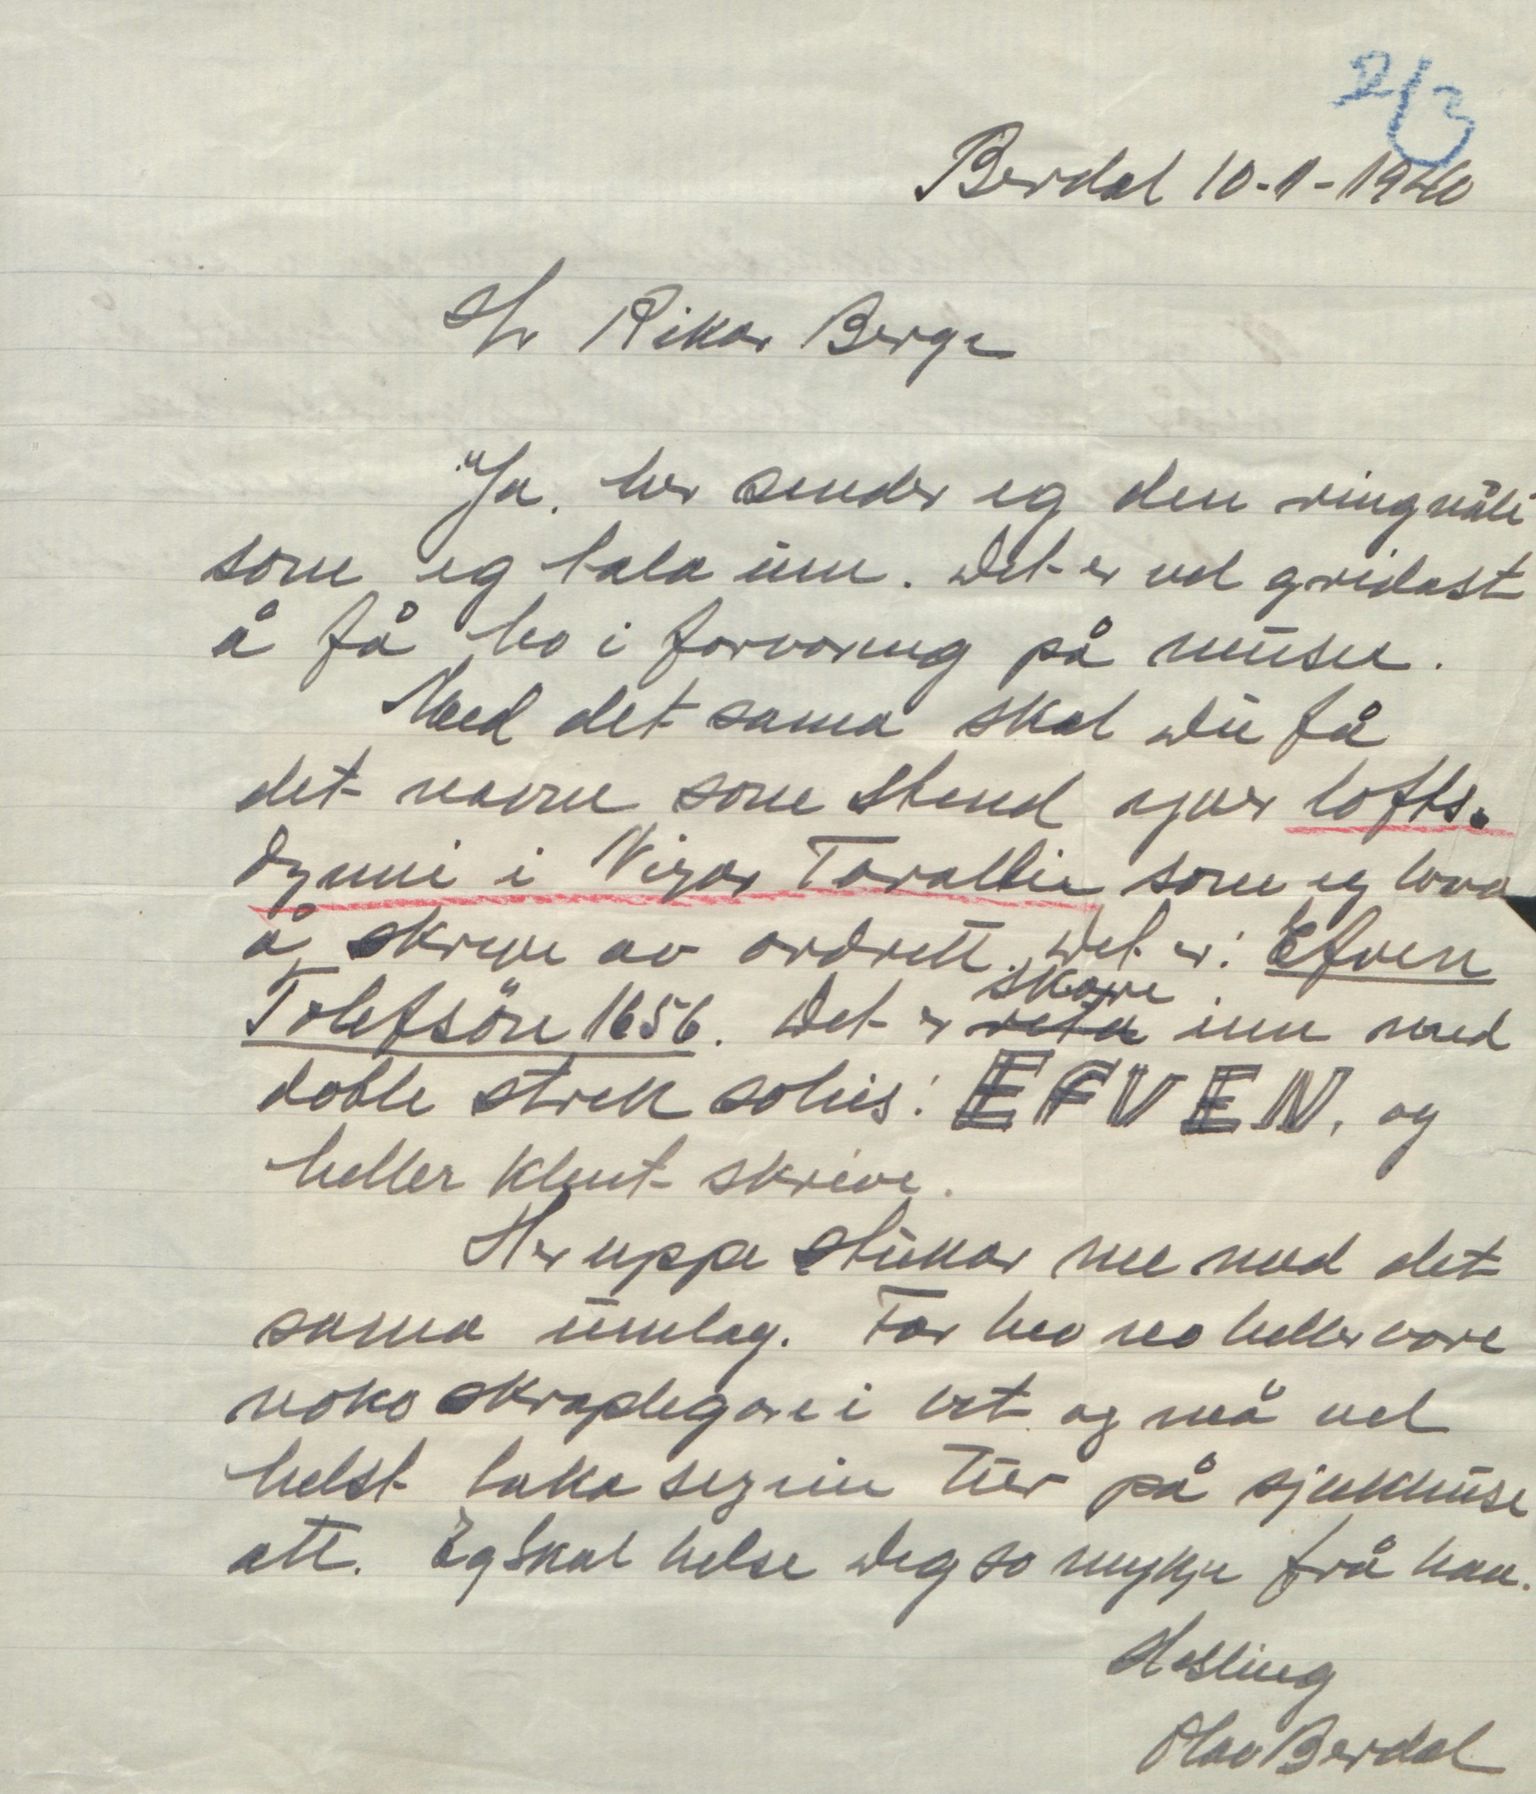 2/3
Berdal 10-1-1940
Hr Rikar Berge
"Ja, her sender eg den ringnåli
som eg tala um. Det er vel gridast
å få ho i forvoring på muse.
Med det sama skal du få
det navne som stend yver lofts-
dynni i Nigar Taraldlie som eg lova
å skrive av ordrett. Det er: Efven
Tolefsön 1656. Det er skore inn med
doble strek soleis: EFVEN, og
heller klent skrive.
Her uppe stukar me med det
sama umlag. Far heo no heller vore
noko skraplegare i vet og må vel
helst taka seg ein tur på sjukhuse
att. Eg skal helse deg so mykje frå han.
Helsing
Olav Berdal